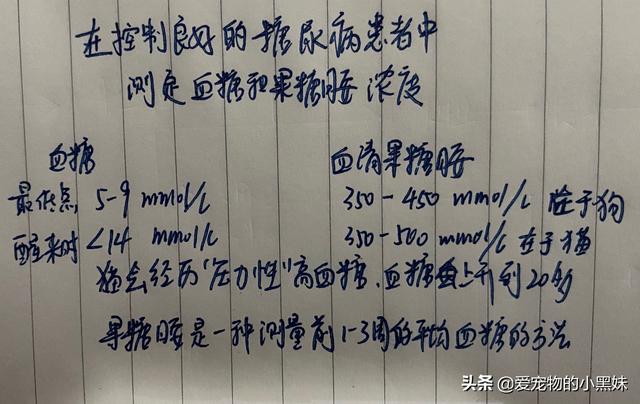 在控制良好的糖尿病患者中
测定血糖和果糖胺浓度
血糖 血清果糖胺
最低点 5-9 mmol/L 350-450 mmol/L 在于狗
醒来时 <14 mmol/L 350-500 mmol/L 在于猫
猫会经历"压力性"高血糖、血糖会上升到20
果糖胺是一种测量前1-3周的平均血糖的方法
头条 @爱宠物的小黑妹